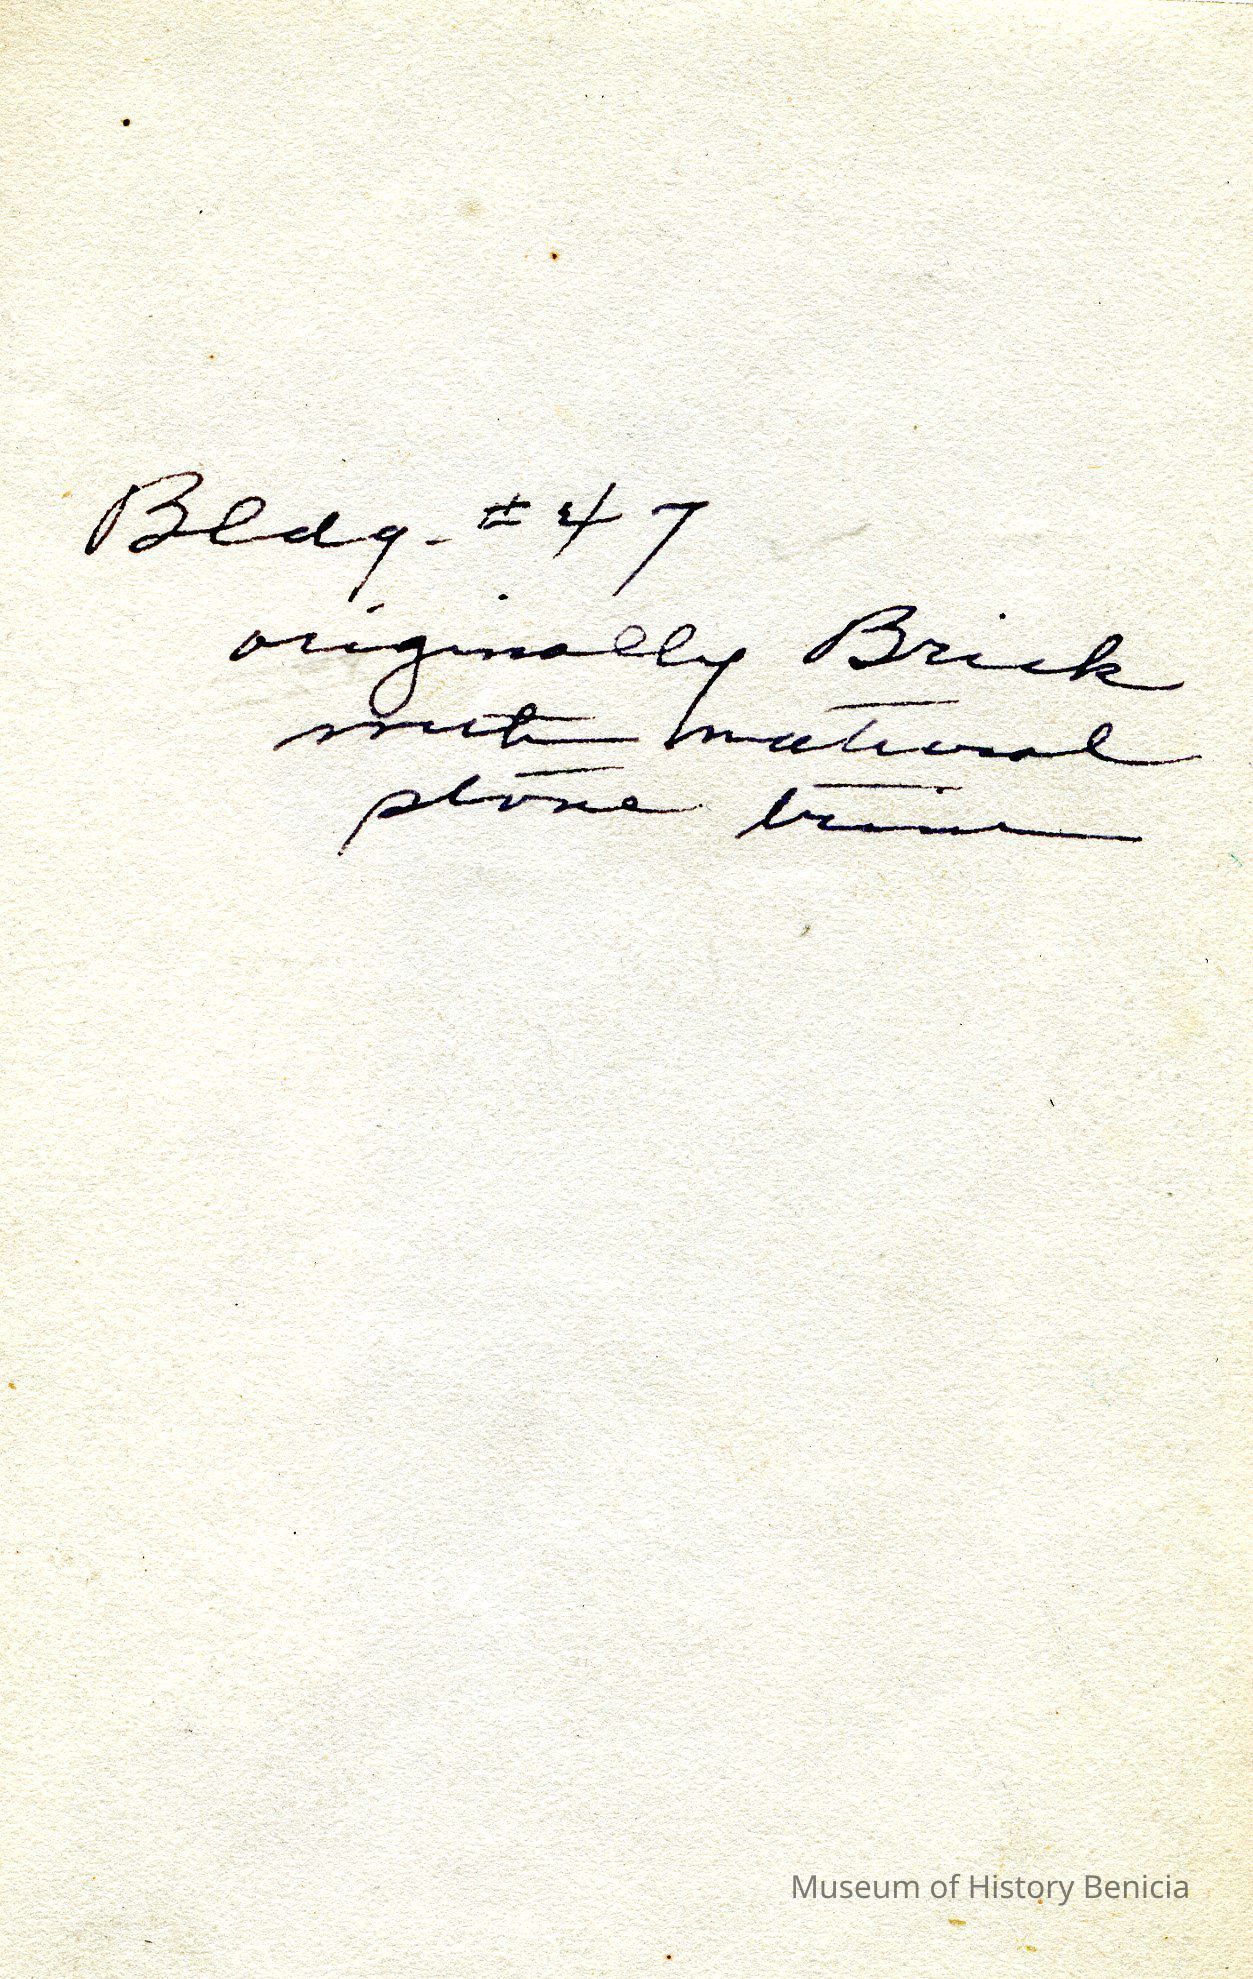 Bldg. #47
originally Brick
with natural
stone trim
Museum of History Benicia